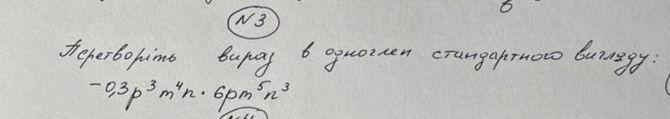 N3
Перетворіть вираз в одноглен стандартного вигляду:
-0,3p³m⁴n · 6pm⁵n³